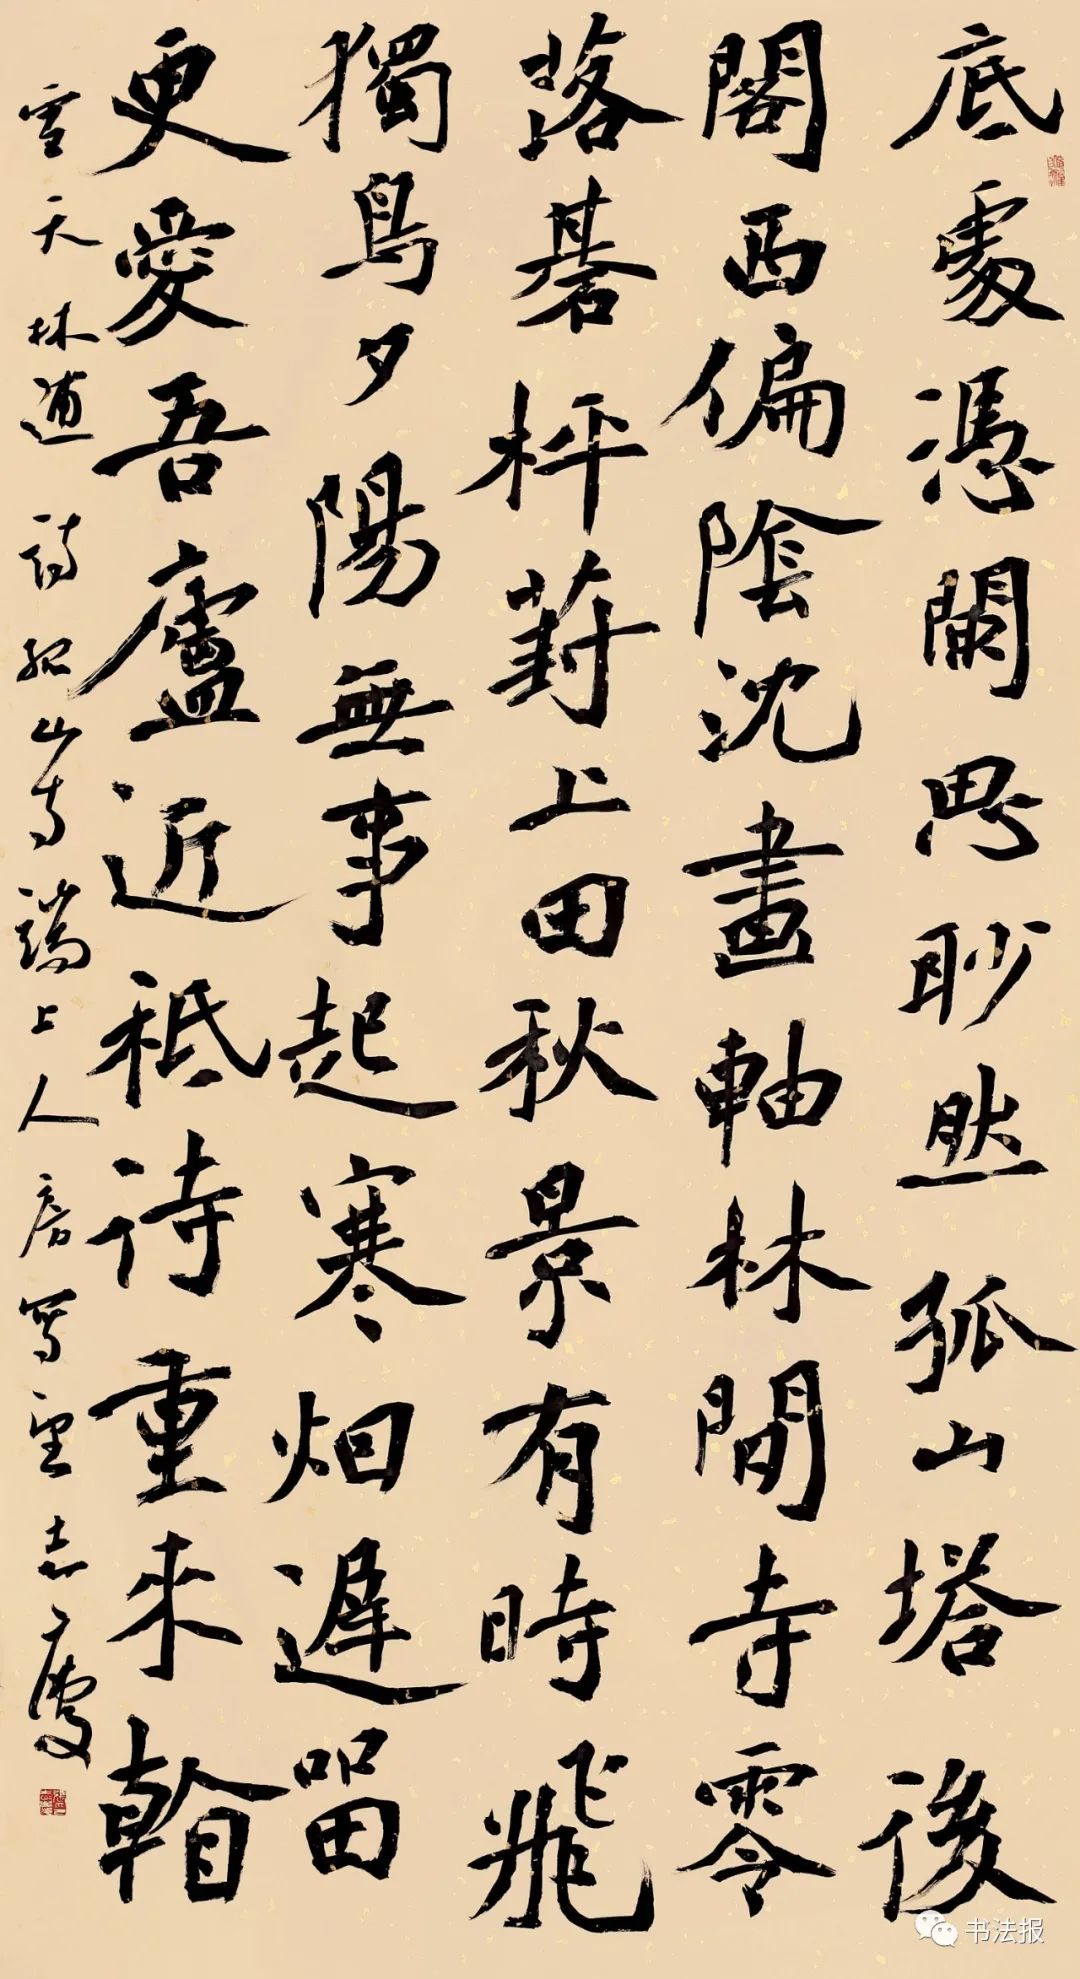 底處憑闌思眇然孤山塔後
閣西偏陰沈畫軸林間寺零
落棊枰葑上田秋景有時飛
獨鳥夕陽無事起寒烟遲留
更愛吾廬近祇待重來看
雪天林逋詩孤山寺端上人房寫望志慶
书法报